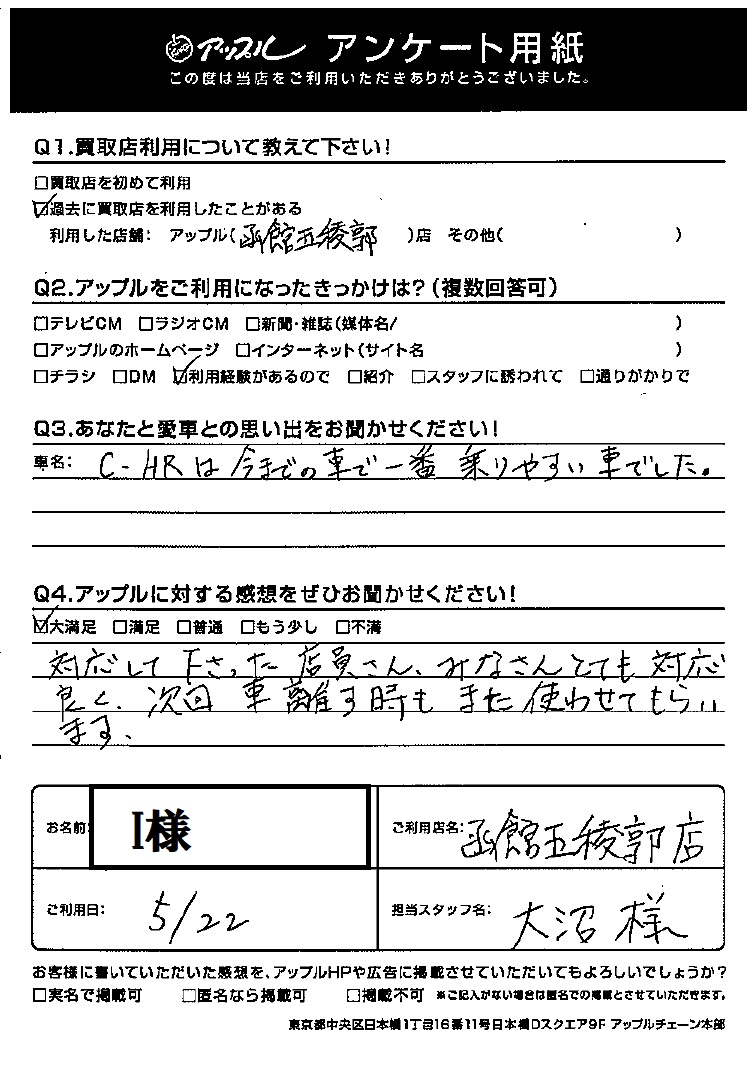 アップル アンケート用紙
この度は当店をご利用いただきありがとうございました。
Q1.買取店利用について教えて下さい!
□買取店を初めて利用
☑過去に買取店を利用したことがある
利用した店舗: アップル(函館五稜郭)店 その他( )
Q2.アップルをご利用になったきっかけは?(複数回答可)
□テレビCM □ラジオCM □新聞・雑誌(媒体名/ )
□アップルのホームページ □インターネット(サイト名 )
□チラシ □DM ☑利用経験があるので □紹介 □スタッフに誘われて □通りがかりで
Q3.あなたと愛車との思い出をお聞かせください!
車名: C-HRは今までの車で一番乗りやすい車でした。
Q4.アップルに対する感想をぜひお聞かせください!
☑大満足 □満足 □普通 □もう少し □不満
対応して下さった店員さん、みなさんとても対応
良く、次回車離す時もまた使わせてもらい
ます、
お名前: I様 ご利用店名: 函館五稜郭店
ご利用日: 5/22 担当スタッフ名: 大沼様
お客様に書いていただいた感想を、アップルHPや広告に掲載させていただいてもよろしいでしょうか?
□実名で掲載可 □匿名なら掲載可 □掲載不可 ※ご記入がない場合は匿名での掲載とさせていただきます。
東京都中央区日本橋1丁目16番11号日本橋Dスクエア9F アップルチェーン本部